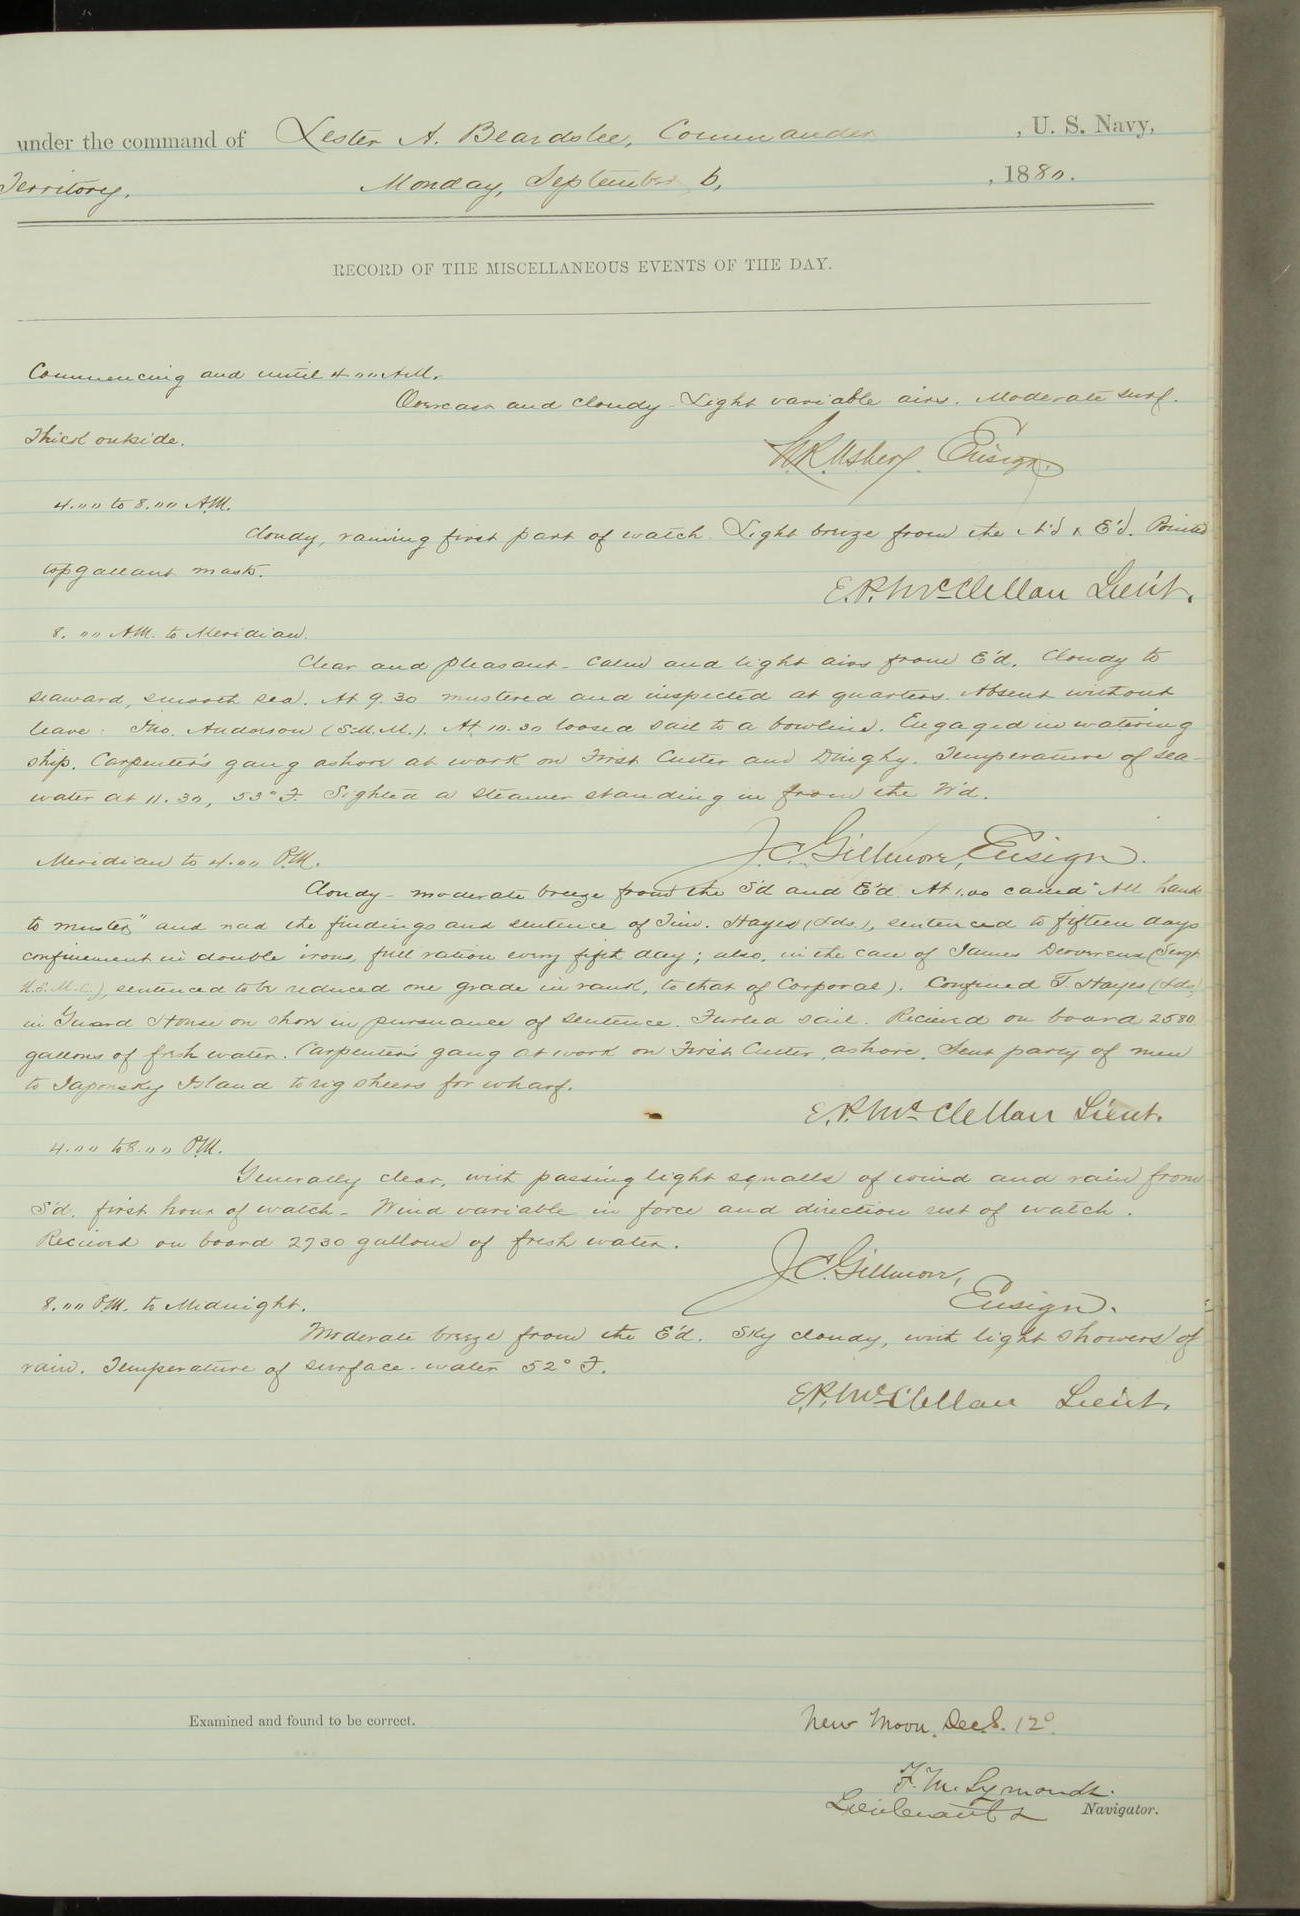 under the command of Lester A. Beardslee, Commander, U. S. Navy,
Territory. Monday, September 6, 1880.
RECORD OF THE MISCELLANEOUS EVENTS OF THE DAY.
Commencing and until 4.00 A.M.
Overcast and cloudy - Light variable airs. Moderate surf.
Thick outside.
Ensign.
4.00 to 8.00 A.M.
Cloudy, raining first part of watch. Light breeze from the N'd & E'd.
topgallant masts.
E.P. McClellan Lieut.
8.00 A.M. to Meridian.
Clear and pleasant - Calm and light airs from E'd. Cloudy to
seaward, smooth sea. At 9.30 mustered and inspected at quarters. Absent without
leave: Jno. Anderson (S.M.M.). At 10.30 loosed sail to a bowline. Engaged in watering
ship. Carpenter's gang ashore at work on First Cutter and Dinghy. Temperature of sea-
water at 11.30, 53° F. Sighted a steamer standing in from the W'd.
J.C. Gillmore, Ensign.
Meridian to 4.00 P.M.
Cloudy - moderate breeze from the S'd and E'd. At 1.00 called "All hands
to muster" and read the findings and sentence of Tim. Hayes (Lds.), sentenced to fifteen days
confinement in double irons, full ration every fifth day; also, in the case of James (Sergt.
U.S.M.C.), sentenced to be reduced one grade in rank, to that of Corporal). Confined T. Hayes (Lds.)
in Guard House on shore in pursuance of sentence. Furled sail. Received on board 2580
gallons of fresh water. Carpenter's gang at work on First Cutter, ashore. Sent party of men
to Japonsky Island to rig sheers for wharf.
E.P. McClellan Lieut.
4.00 to 8.00 P.M.
Generally clear, with passing light squalls of wind and rain from
S'd. first hour of watch - Wind variable in force and direction rest of watch.
Received on board 2730 gallons of fresh water.
J.C. Gillmore,
Ensign.
8.00 P.M. to Midnight.
Moderate breeze from the E'd. Sky cloudy, with light showers of
rain. Temperature of surface-water 52° F.
E.P. McClellan Lieut.
Examined and found to be correct.
New Moon. Dec. 8. 12°
F. M. Symonds.
Lieutenant & Navigator.